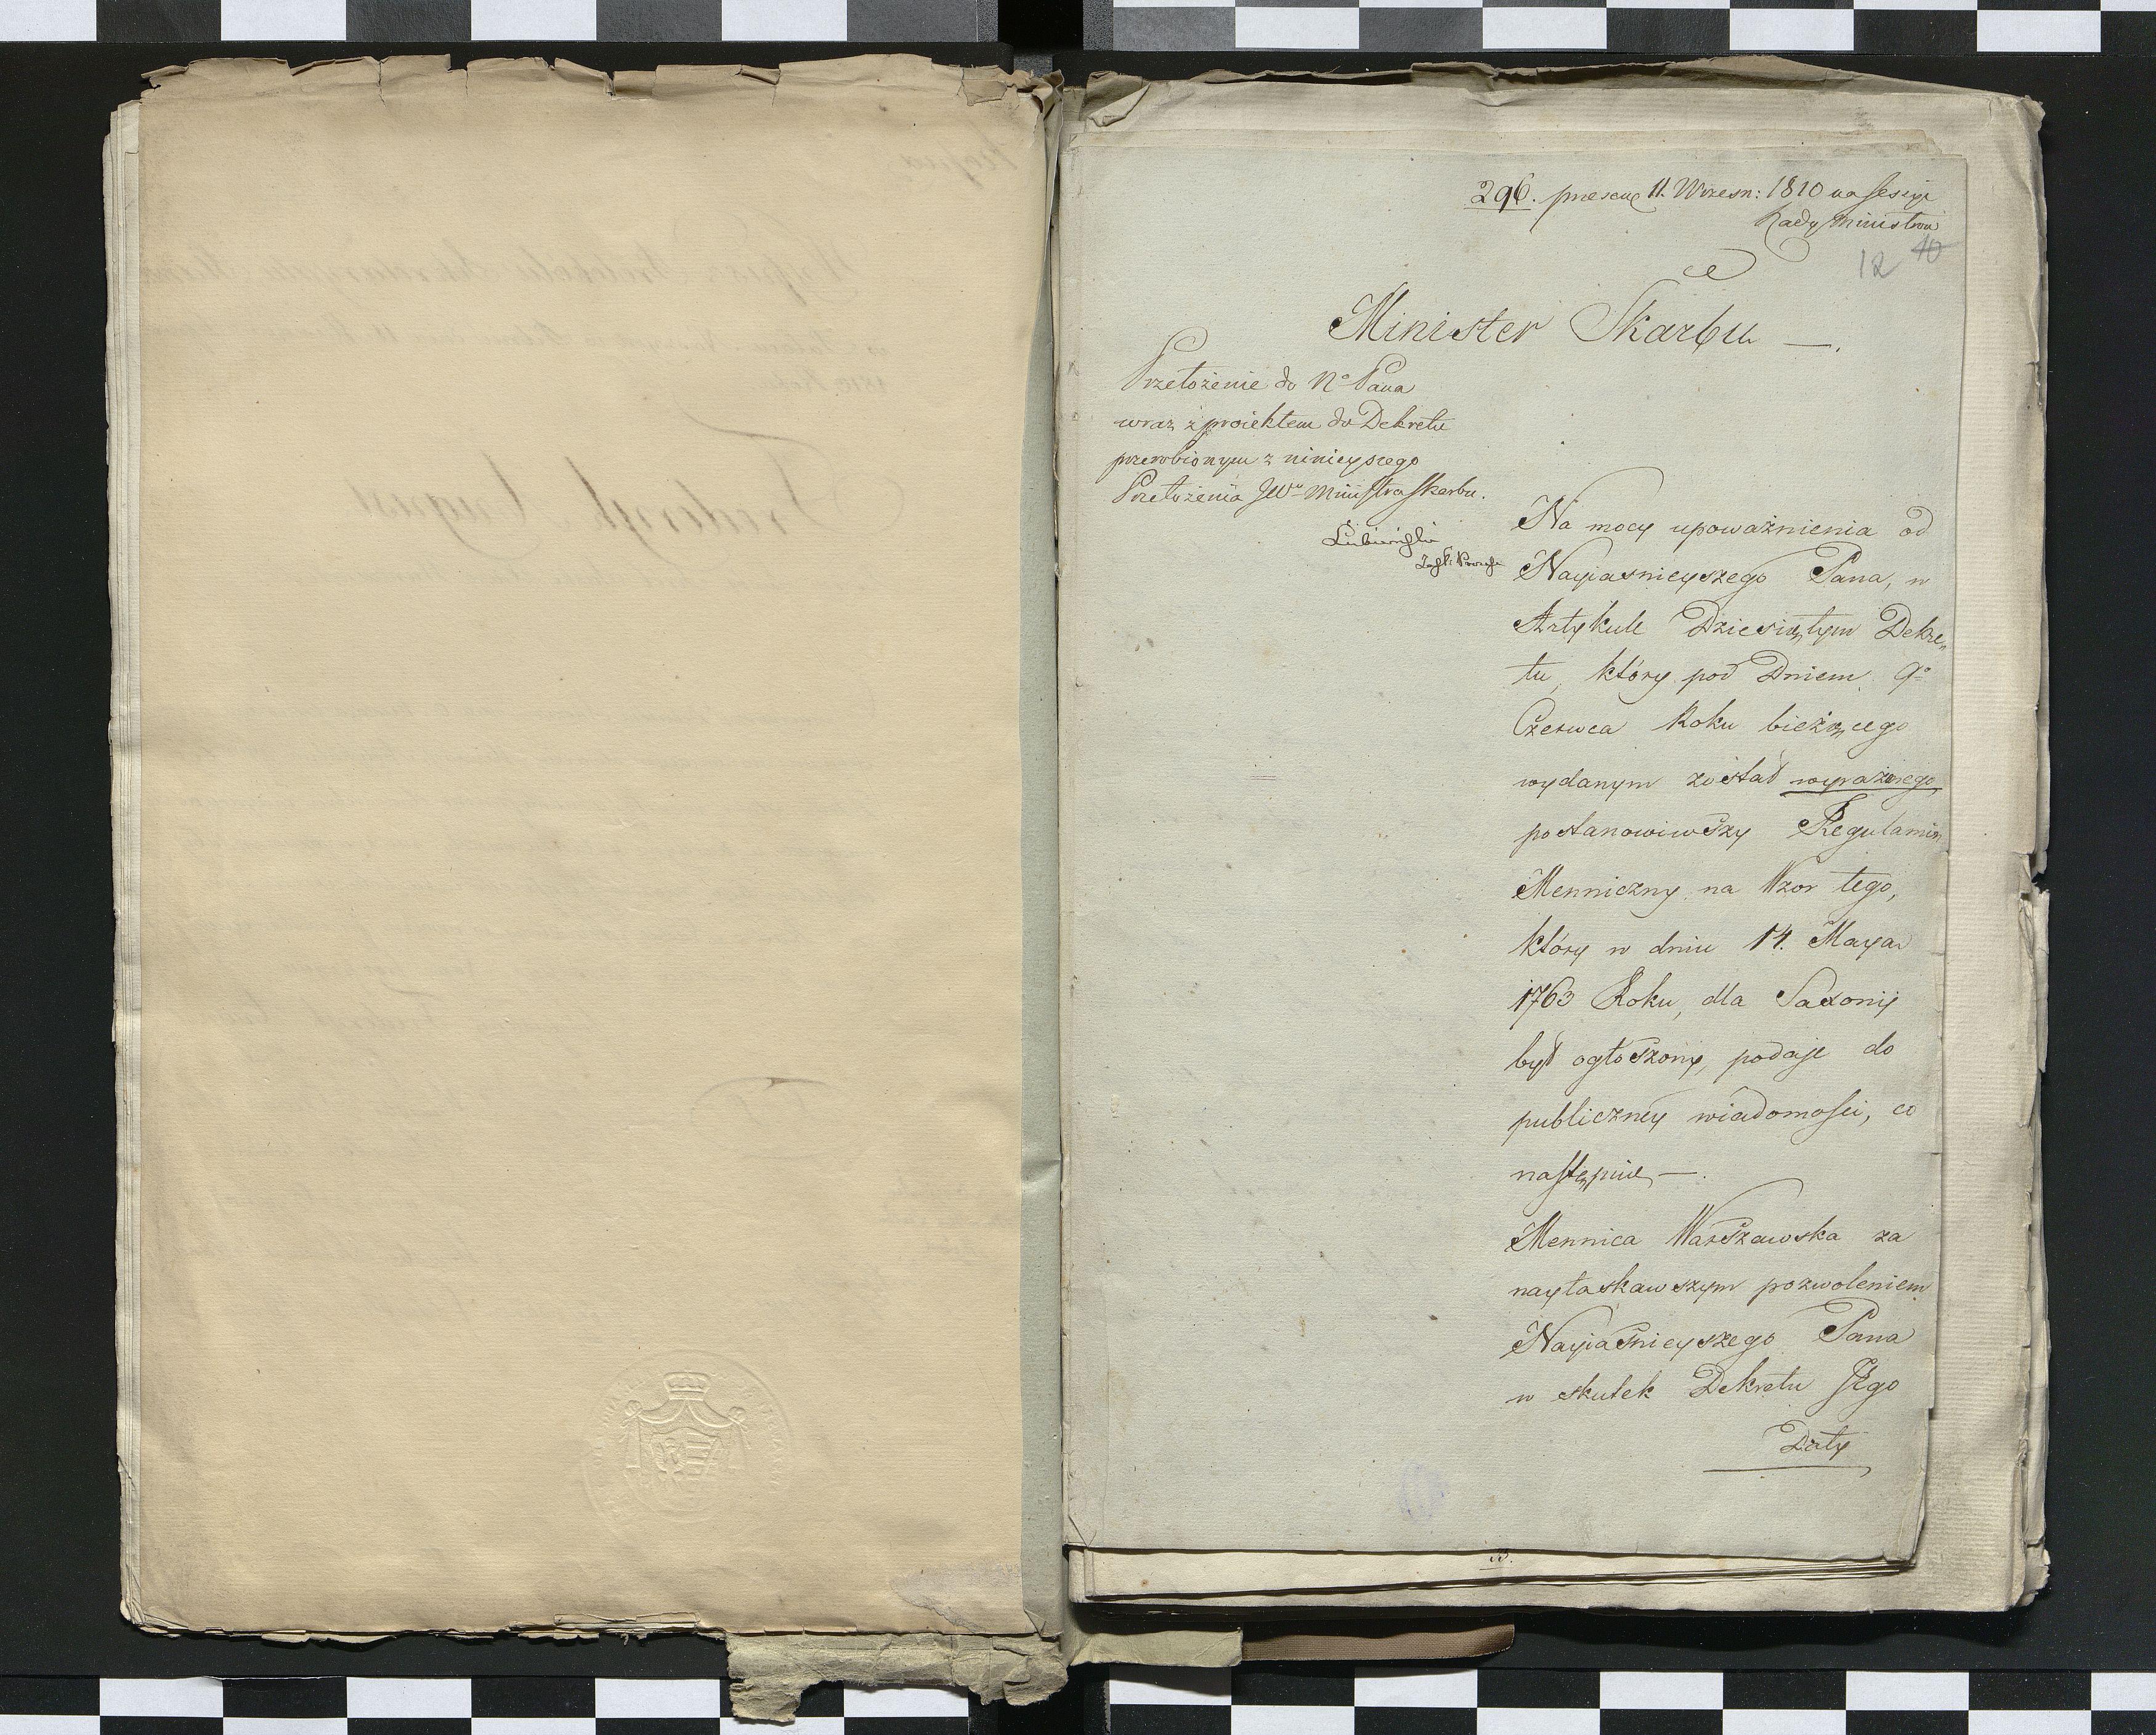 296. praesent 11. Wrzesn: 1810 na sessyi
Rady Ministrów
12 40
Minister Skarbu —.
Przełożenie do No Pana
wraz z proiektem do Dekretu
przerobionym z ninieyszego
Przełożenia JWo Ministra Skarbu.
Na mocy upoważnienia od
Nayiasnieyszego Pana, w
Artykule Dziesiątym Dekre„
tu, który pod Dniem 9o
Czerwca Roku bieżącego
wydanym został wyrażonego,
postanowiwszy Regulamin
Menniczny na Wzor tego,
który w dniu 14. Maya
1763 Roku, dla Saxonij
był ogłoszony, podaje do
publiczney wiadomości, co
następuie —.
Mennica Warszawska za
nayłaskawszym pozwoleniem
Nayiaśnieyszego Pana
w skutek Dekretu Jego
Daty